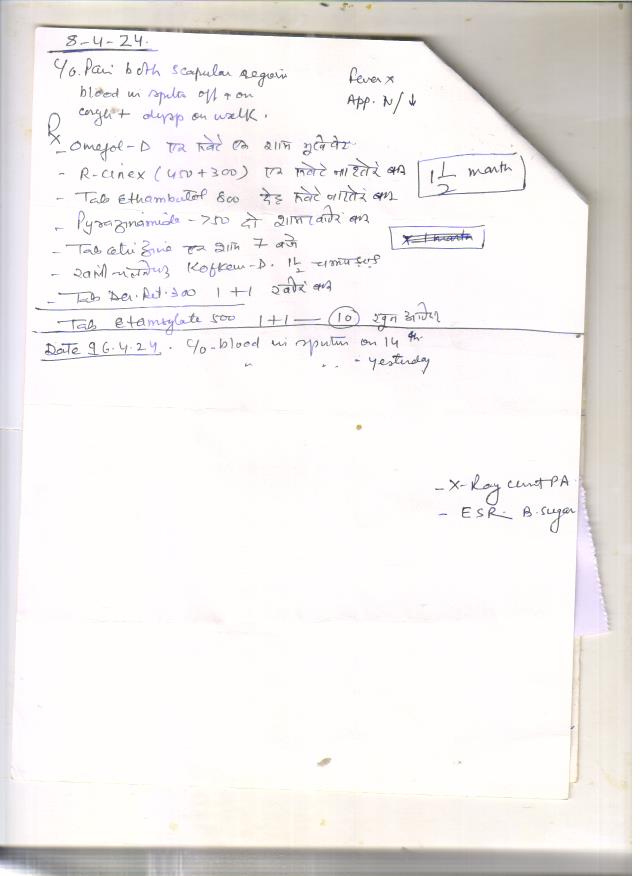 8-4-24.
C/o. Pain both scapular region
Fever x
blood in sputm off + on
App. N/↓
cough + dysp on walk.
Rx
- Omejol-D एक सवेरे एक शाम
- R-cinex (450+300) एक सवेरे नाश्ते के बाद
1 1/2 month
- Tab Ethambutol 800 सवेरे नाश्ते के बाद
- Pyrazinamide - 750 दो शाम बाद
- Tab cetrizine एक शाम 7 बजे
x 1 month
- Kofkem-D. 1 1/2
- Tab 300 1+1 बाद
Tab Etamsylate 500 1+1 — 10 खून
Date 16.4.24. C/o - blood in sputm on 14th
" " - yesterday
- X-Ray chest PA
- ESR. B. sugar